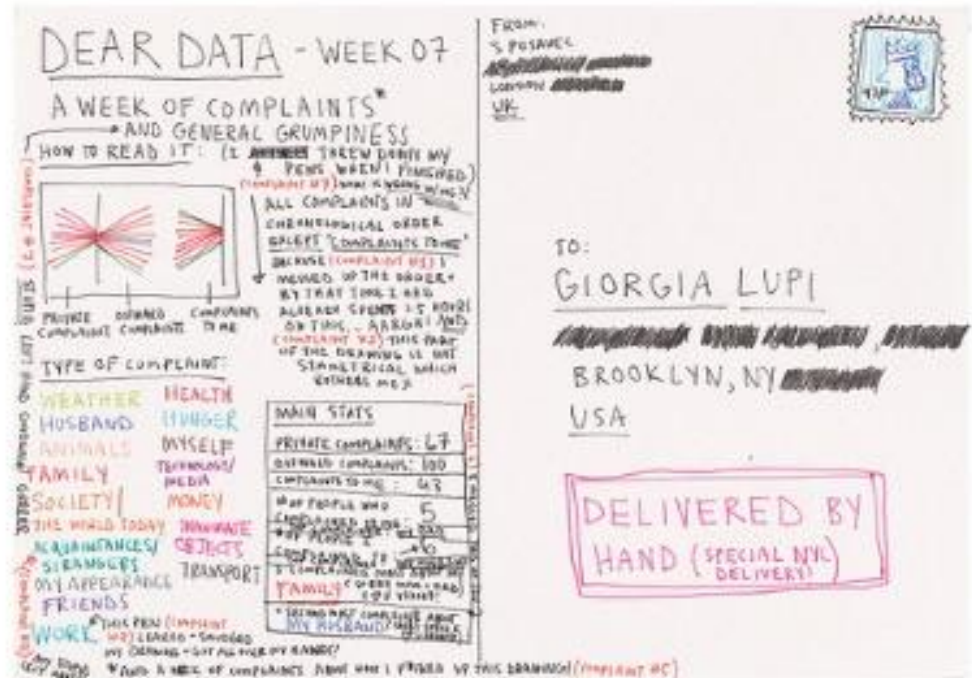 DEAR DATA - WEEK 07
A WEEK OF COMPLAINTS*
AND GENERAL GRUMPINESS
HOW TO READ IT:
(I THREW DOWN MY
PENS WHEN I FINISHED)
ALL COMPLAINTS IN
CHRONOLOGICAL ORDER
EXCEPT "COMPLAINTS TO ME"
BECAUSE (COMPLAINT #1) I
MESSED UP THE ORDER -
BY THAT TIME I HAD
ALREADY SPENT 1.5 HOURS
ON THIS.. AARGH! AND
(COMPLAINT #2) THIS PART
OF THE DRAWING IS NOT
SYMETRICAL WHICH
BOTHERS ME)
PRIVATE COMPLAINT
OUTWARD COMPLAINTS
COMPLAINTS TO ME
TYPE OF COMPLAINT:
WEATHER
HUSBAND
ANIMALS
FAMILY
SOCIETY/
THE WORLD TODAY
ACQUAINTANCES/
STRANGERS
MY APPEARANCE
FRIENDS
WORK
HEALTH
HUNGER
MYSELF
TECHNOLOGY/
MEDIA
MONEY
INANIMATE
OBJECTS
TRANSPORT
MAIN STATS
PRIVATE COMPLAINTS: 67
OUTWARD COMPLAINTS: 100
COMPLAINTS TO ME: 43
# OF PEOPLE WHO
5
6
FAMILY
MY HUSBAND
*THIS PEN (COMPLAINT
LEAKED - SMUDGED
MY DRAWING - GOT ALL OVER MY HANDS!
*AND A WEEK OF COMPLAINTS ABOUT HOW I FUCKED UP THIS DRAWING! (COMPLAINT #5)
FROM:
S POSAVEC
LONDON
UK
TO:
GIORGIA LUPI
BROOKLYN, NY
USA
DELIVERED BY
HAND (SPECIAL NYC
DELIVERY!)